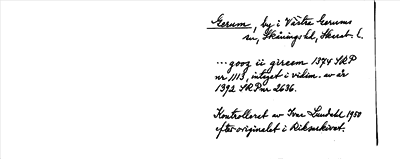 Gerum, by i Västra Gerums
sn, Skånings hd, Skarab. l.
... gooz ii girem 1374 SRP
nr 1113, intaget i vidim. av år
1392 SRP nr 2636.
Kontrolleret av Ivar Lundahl 1950
efter originalet i Riksarkivet.